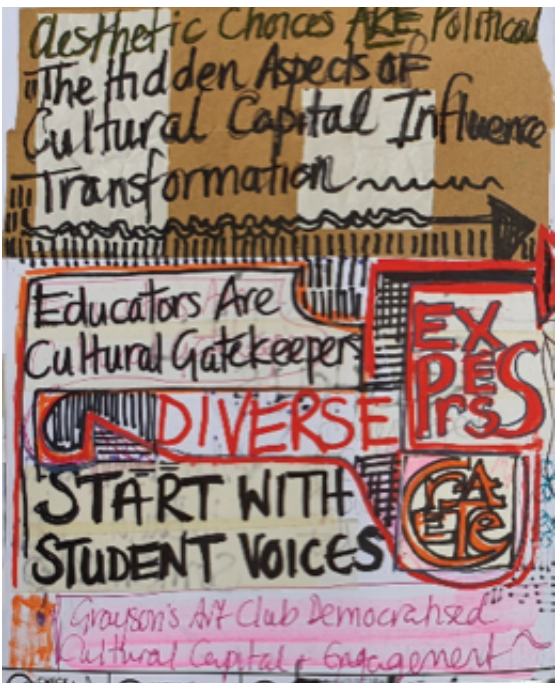 Aesthetic Choices ARE Political
"The Hidden Aspects OF
Cultural Capital Influence
Transformation
Educators Are
Cultural Gatekeepers
DIVERSE
START WITH
STUDENT VOICES
EXPERS
CrEATe
Grayson's Art Club Democratised
Cultural Capital & Engagement